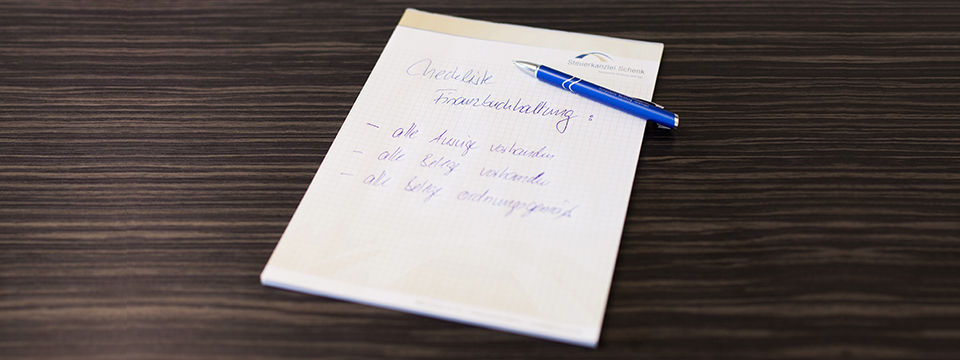 Steuerkanzlei Schenk
Checkliste
Finanzbuchhaltung :
- alle Auszüge vorhanden
- alle Belege vorhanden
- alle Belege ordnungsgemäß